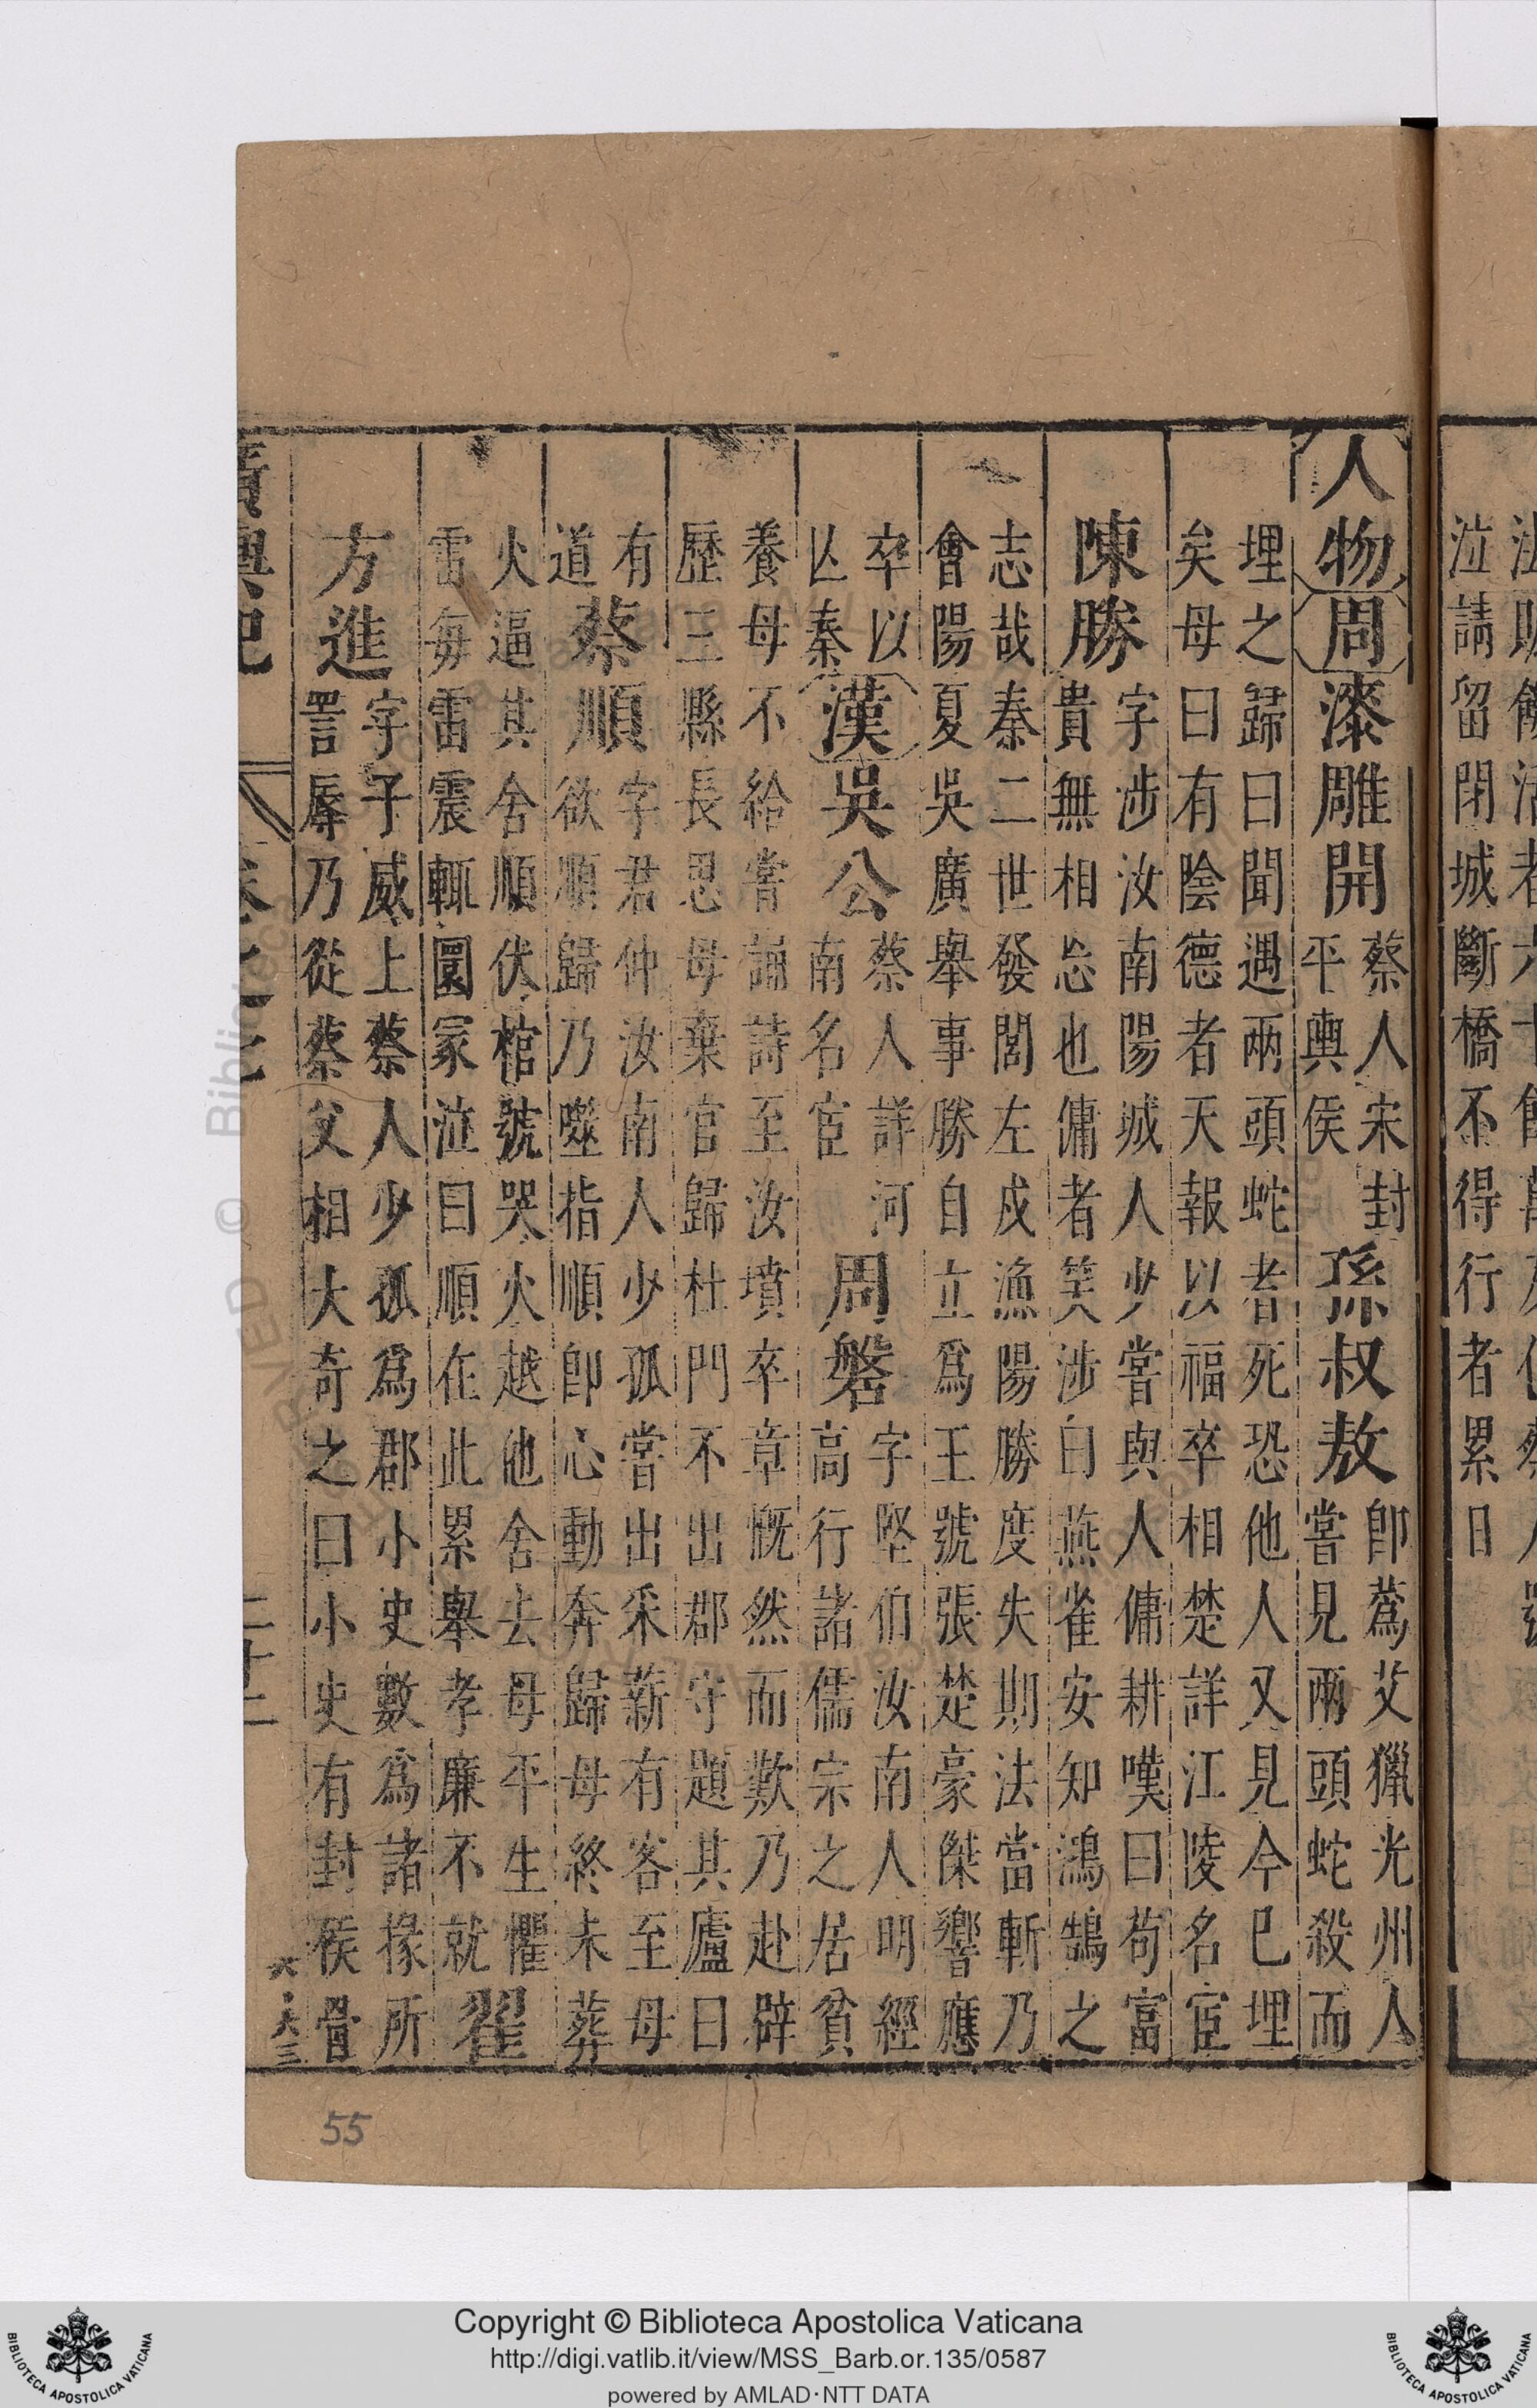 泣請留閉城斷橋不得行者累日
人物 周 漆雕開 蔡人宋封
平輿侯 孫叔敖 卽蒍艾獵光州人
嘗見兩頭蛇殺而
埋之歸曰聞遇兩頭蛇者死恐他人又見今巳埋
矣母曰有陰德者天報以福卒相楚詳江陵名宦
陳勝 字涉汝南陽城人少嘗與人傭耕嘆曰茍富
貴無相忘也傭者笑涉曰燕雀安知鴻鵠之
志哉秦二世發閭左戍漁陽勝度失期法當斬乃
會陽夏吳廣舉事勝自立爲王號張楚豪傑響應
卒以
亾秦 漢 吳公 蔡人詳河
南名宦 周磐 字堅伯汝南人明經
高行諸儒宗之居貧
養母不給嘗誦詩至汝墳卒章慨然而歎乃赴辟
歷三縣長思母棄官歸杜門不出郡守題其廬曰
有
道 蔡順 字君仲汝南人少孤嘗出采薪有客至母
欲順歸乃噬指順卽心動奔歸母終未葬
火逼其舍順伏棺號哭火越他舍去母平生懼
雷每雷震輒圜冢泣曰順在此累舉孝廉不就 翟
方進 字子威上蔡人少孤爲郡小史數爲諸掾所
詈辱乃從蔡父相大奇之曰小史有封侯骨
55
Copyright © Biblioteca Apostolica Vaticana
http://digi.vatlib.it/view/MSS_Barb.or.135/0587
powered by AMLAD·NTT DATA